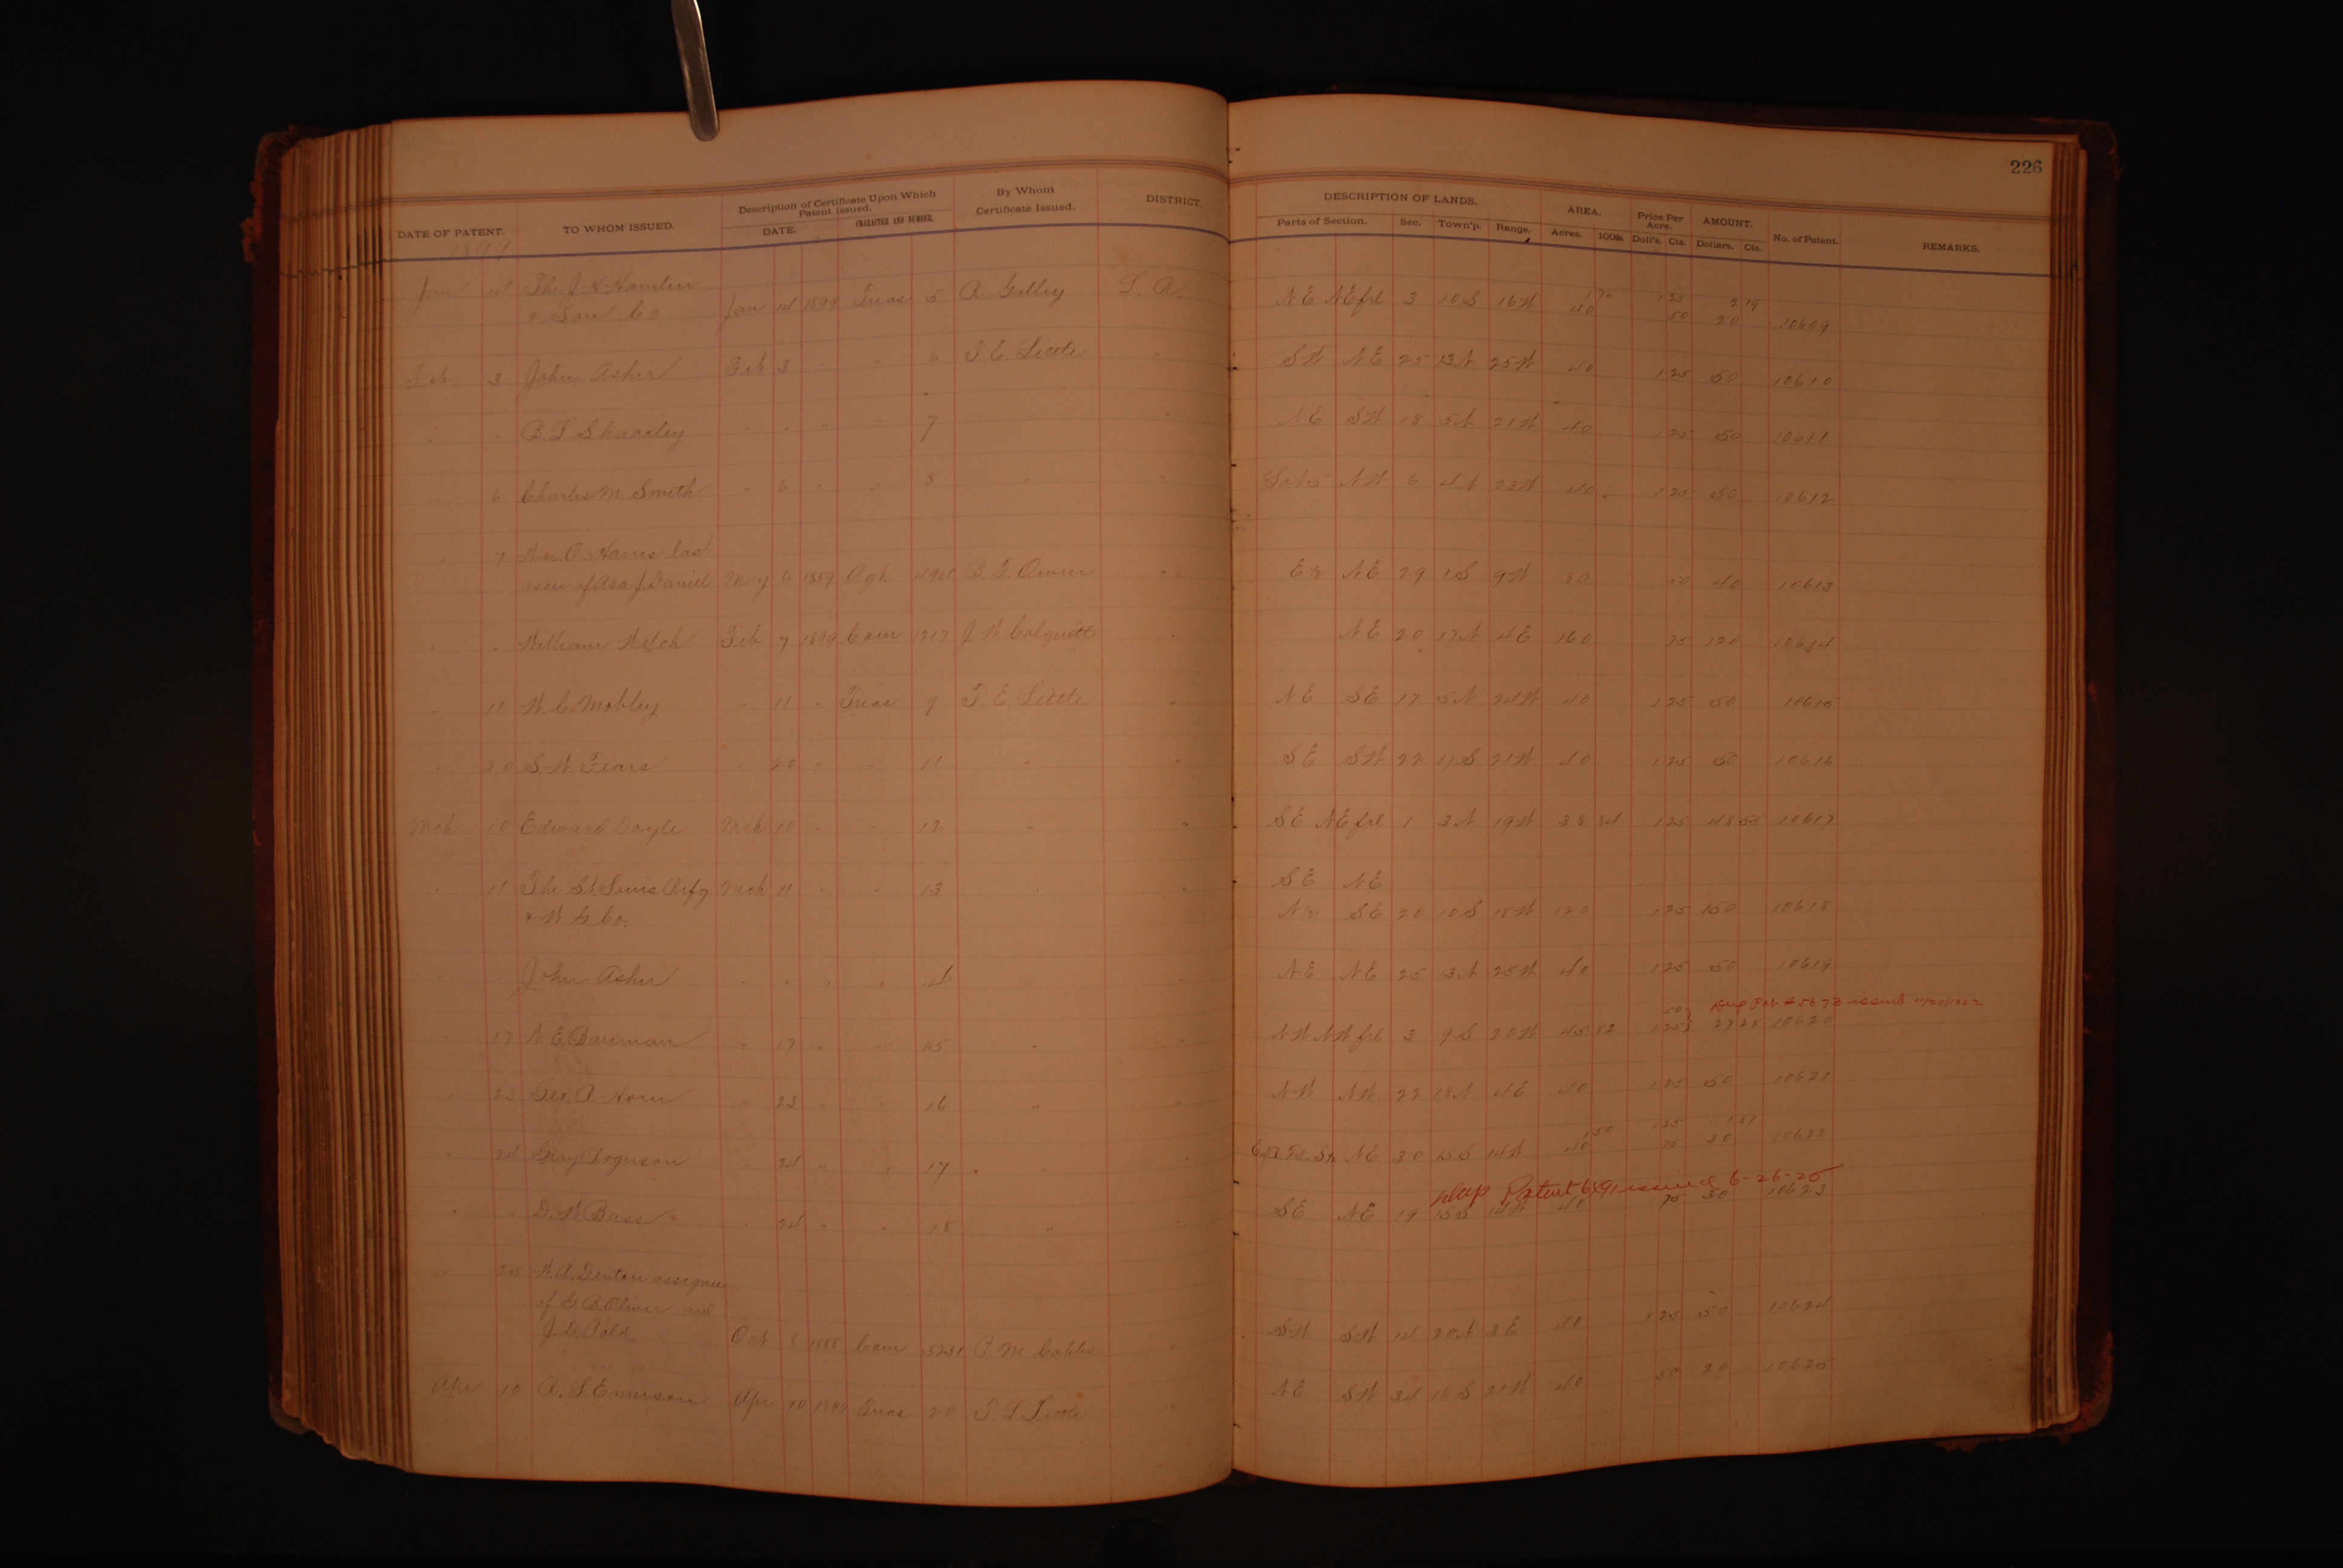 226
DATE OF PATENT. TO WHOM ISSUED. Description of Certificate Upon Which Patent Issued. DATE. CHARACTER AND NUMBER. By Whom Certificate Issued. DISTRICT. DESCRIPTION OF LANDS. Parts of Section. Sec. Town'p. Range. AREA. Acres. 100ths. Price Per Acre. Doll's. Cts. AMOUNT. Dollars. Cts. No. of Patent. REMARKS.
1899
Jan 14 The J. H. Hamlen 1 76 1 25 2 19
& Son Co Jan 14 1899 Treas 5 A. Gulley L. R. NE NEfrl 3 10 S 16 W 40 50 20 10609
Feb 3 John Asher Feb 3 " " 6 T E Little " SW NE 25 13 N 25 W 40 1 25 50 10610
" " B. T. Shackley " " " " 7 " NE SW 18 5 N 21 W 40 1 25 50 10611
" 6 Charles M. Smith " 6 " " 8 " " NW 6 4 N 23 W 40 1 25 50 10612
" 7 Wm. O. Harris last
assee of Asa J. Daniel May 6 1859 Agl. 494 " E½ NE 29 1 S 9 W 80 50 40 10613
" " William Welch Feb 7 1899 Cam 1217 J. W. Colquitt " NE 20 17 N 4 E 160 75 120 10614
" 11 W. C. Mobley " 11 " Treas 9 T. E. Little " NE SE 17 5 N 24 W 40 1 25 50 10615
" 20 S. W. Fears " 20 " " 11 " " SE SW 22 17 S 21 W 40 1 25 50 10616
Mch 10 Edward Doyle Mch 10 " " 12 " " SE NEfrl 1 3 N 19 W 38 84 1 25 48 55 10617
" 11 The St. Louis Refg Mch 11 " " 13 " " SE NE
& W G Co. N½ SE 20 10 S 18 W 120 1 25 150 10618
" " John Asher " " " " 14 " " NE NE 25 13 N 25 W 40 1 25 50 10619
50 Dup Pat # 5673 issued 11/20/1922
" 17 N. E. " 17 " " 15 " " NW NWfrl 3 9 S 20 W 45 82 1 25 27 28 10620
" 23 Geo. A. Horn " 23 " " 16 " " NW NW 22 18 N 4 E 40 1 25 50 10621
1 50 1 25 1 87
" 24 Gray " 24 " " 17 " " NE 30 15 S 14 W 40 75 30 10622
Dup Patent issued 6-26-25
" " D. W. Bass " 24 " " 18 " " SE NE 19 15 S 14 W 40 75 30 10623
" 25 W. A. Denton assignee
of G. B. Oliver and
J. D. Oct 8 1888 Cam 5231 " SW SW 14 20 N 3 E 40 1 25 50 10624
Apr 10 A. S. Emerson Apr 10 1899 Treas 20 Little " NE SW 34 16 S 21 W 40 50 20 10625